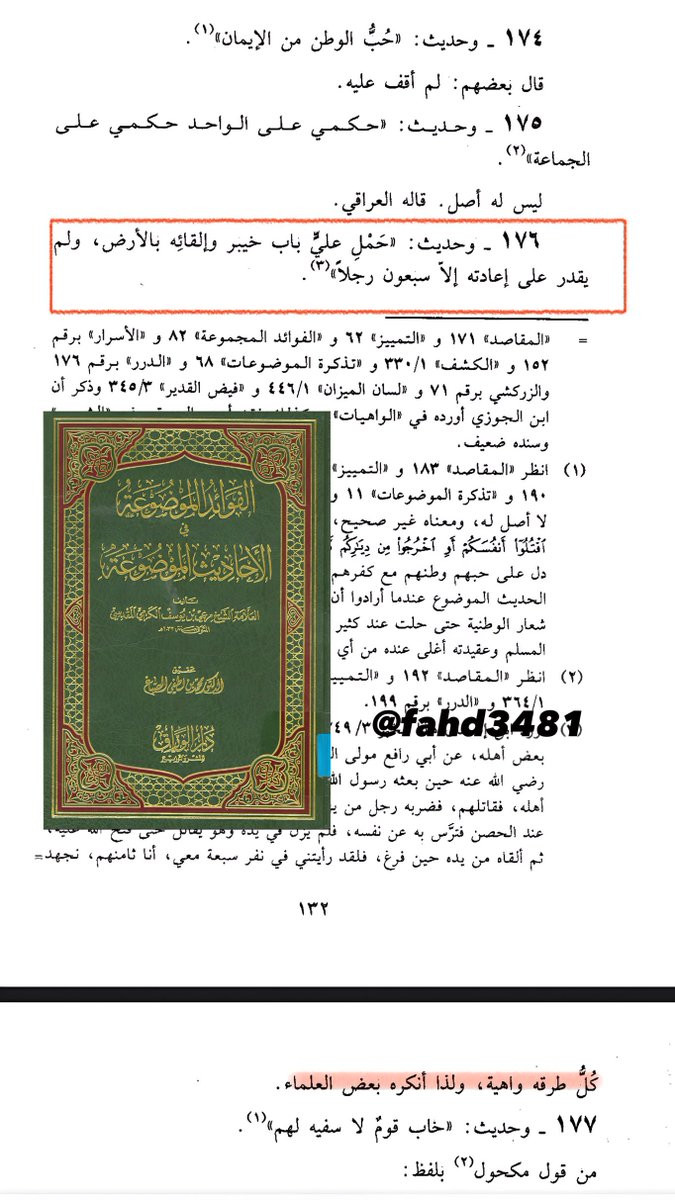 ١٧٤ ـ وحديث: «حُبُّ الوطن من الإيمان»(١).
قال بعضهم: لم أقف عليه.
١٧٥ ـ وحديث: «حكمي على الواحد حكمي على
الجماعة»(٢).
ليس له أصل. قاله العراقي.
١٧٦ ـ وحديث: «حَمْلِ عليٍّ باب خيبر وإلقائِه بالأرض، ولم
يقدر على إعادته إلاّ سبعون رجلاً»(٣).
= «المقاصد» ١٧١ و «التمييز» ٦٢ و «الفوائد المجموعة» ٨٢ و «الأسرار» برقم
١٥٢ و «الكشف» ٣٣٠/١ و «تذكرة الموضوعات» ٦٨ و «الدرر» برقم ١٧٦
والزركشي برقم ٧١ و «لسان الميزان» ٤٤٦/١ و «فيض القدير» ٣٤٥/٣ وذكر أن
ابن الجوزي أورده في «الواهيات»
وسنده ضعيف.
(١) انظر «المقاصد» ١٨٣ و «التمييز»
١٩٠ و «تذكرة الموضوعات» ١١ و
لا أصل له، ومعناه غير صحيح،
اقْتُلُوٓا أَنفُسَكُمْ أَوِ اخْرُجُوا مِن دِيَارِكُم
دل على حبهم وطنهم مع كفرهم
الحديث الموضوع عندما أرادوا أن
شعار الوطنية حتى حلت عند كثير
المسلم وعقيدته أغلى عنده من أي
(٢) انظر «المقاصد» ١٩٢ و «التمييز
٣٦٤/١ و «الدرر» برقم ١٩٩.
بعض أهله، عن أبي رافع مولى
رضي الله عنه حين بعثه رسول الله
أهله، فقاتلهم، فضربه رجل من
عند الحصن فترَّس به عن نفسه، فلم يزل في يده وهو يقاتل حتى فتح الله عليه،
ثم ألقاه من يده حين فرغ، فلقد رأيتني في نفر سبعة معي، أنا ثامنهم، نجهد=
١٣٢
الفوائد الموضوعة
في
الأحاديث الموضوعة
تأليف
العلامة الشيخ مرعي بن يوسف الكرمي المقدسي
تحقيق
الدكتور محمد بن لطفي الصباغ
دار الوراق
@fahd3481
كُلُّ طرقه واهية، ولذا أنكره بعض العلماء.
١٧٧ ـ وحديث: «خاب قومٌ لا سفيه لهم»(١).
من قول مكحول(٢) بلفظ: